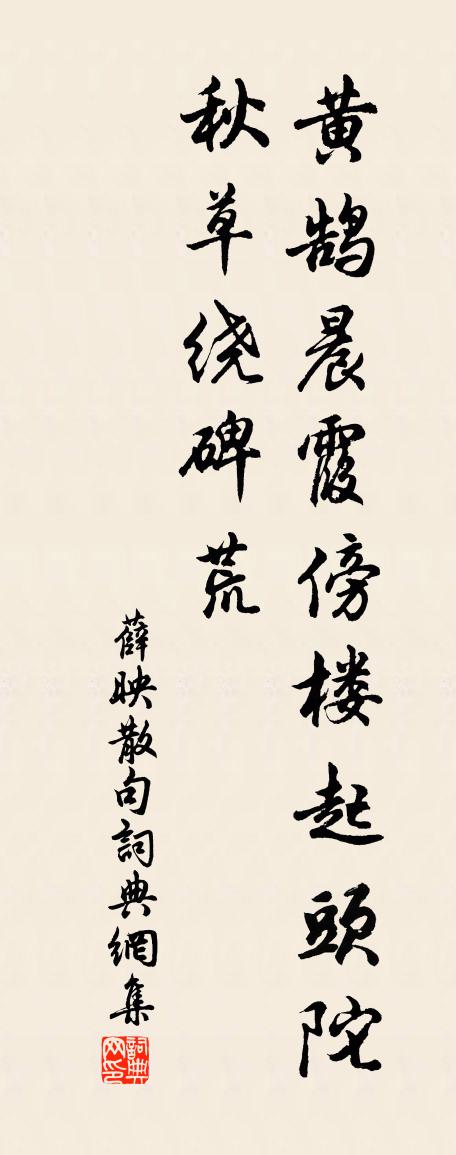 黄鹄晨霞傍楼起頭陀
秋草绕碑荒
薛映散句詞典網集
詞典网印